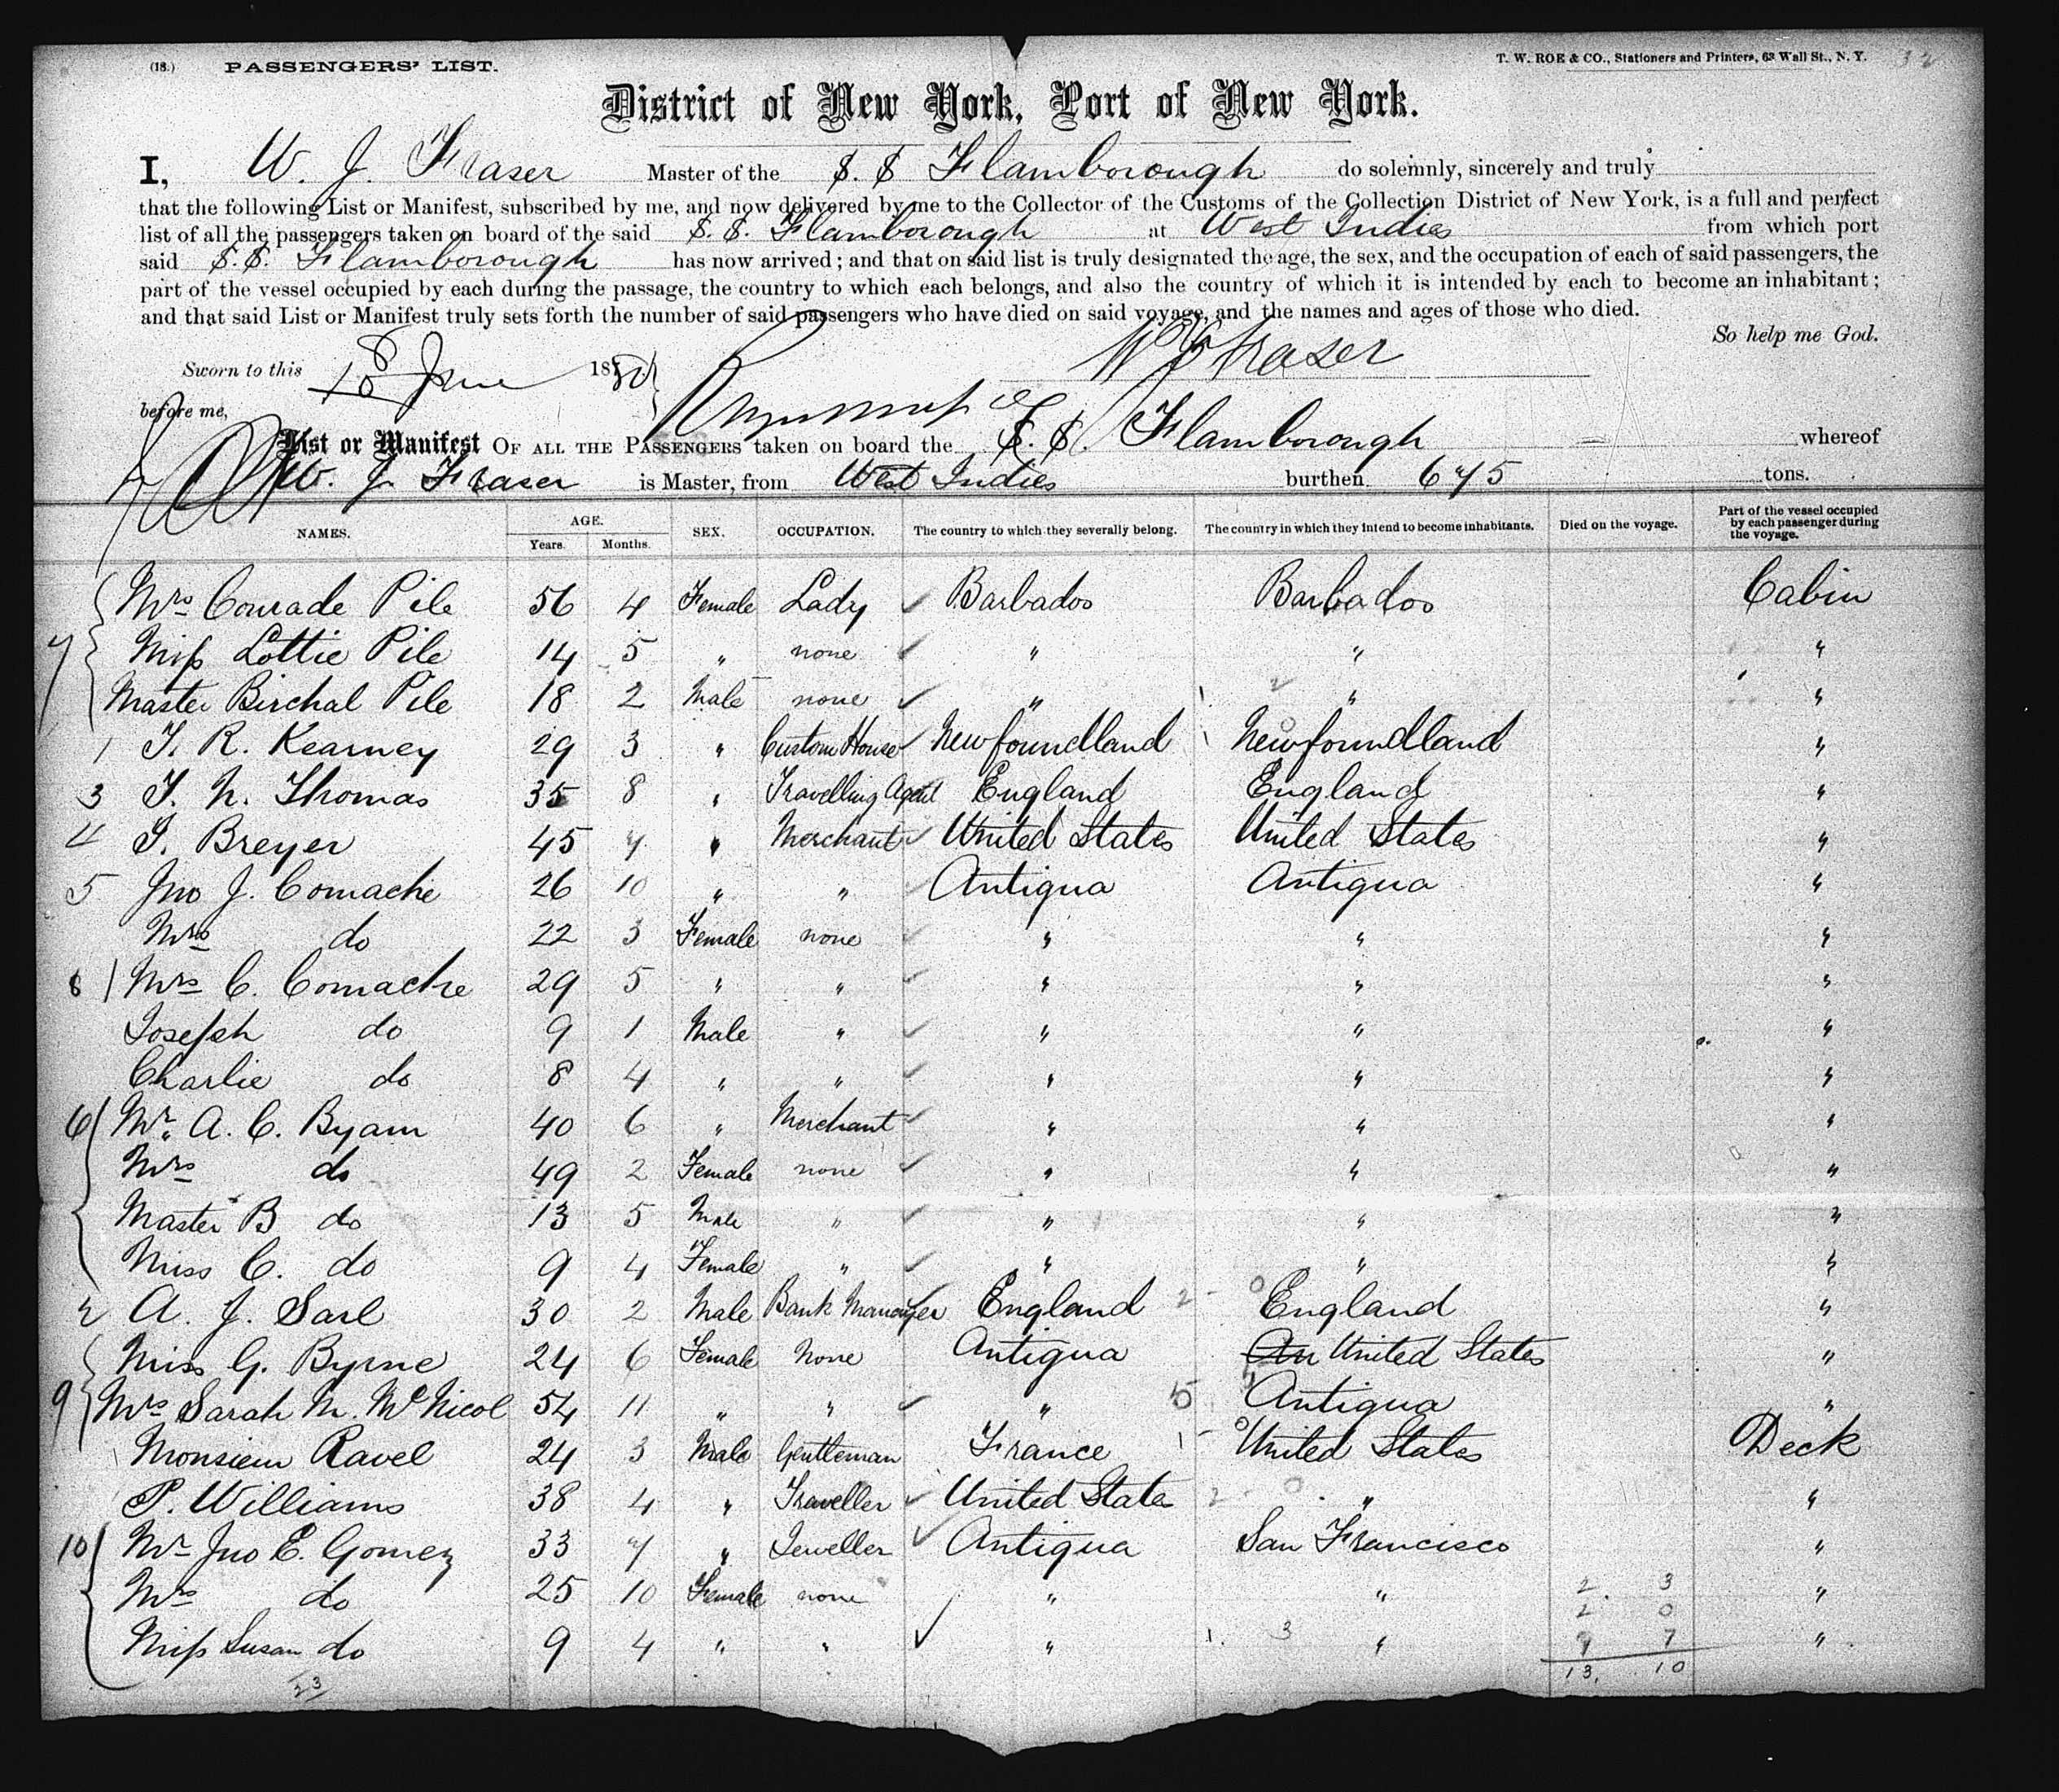 (18.) PASSENGERS' LIST.
T. W. ROE & CO., Stationers and Printers, 63 Wall St., N. Y.
District of New York, Port of New York.
I, W. J. Fraser Master of the S. S Flamborough do solemnly, sincerely and truly
that the following List or Manifest, subscribed by me, and now delivered by me to the Collector of the Customs of the Collection District of New York, is a full and perfect
list of all the passengers taken on board of the said S. S. Flamborough at West Indies from which port
said S. S. Flamborough has now arrived; and that on said list is truly designated the age, the sex, and the occupation of each of said passengers, the
part of the vessel occupied by each during the passage, the country to which each belongs, and also the country of which it is intended by each to become an inhabitant;
and that said List or Manifest truly sets forth the number of said passengers who have died on said voyage, and the names and ages of those who died.
So help me God.
Sworn to this 18 June 1880 W J Fraser
before me,
List or Manifest OF ALL THE PASSENGERS taken on board the S. S. Flamborough whereof
W. J. Fraser is Master, from West Indies burthen 675 tons.
NAMES. AGE. Years. Months. SEX. OCCUPATION. The country to which they severally belong. The country in which they intend to become inhabitants. Died on the voyage. Part of the vessel occupied by each passenger during the voyage.
Mrs Conrade Pile 56 4 Female Lady Barbados Barbados Cabin
7 Miss Lottie Pile 14 5 " none " " "
Master Birchal Pile 18 2 Male none " " "
1 T. R. Kearney 29 3 " Custom House Newfoundland Newfoundland "
3 T. N. Thomas 35 8 " Travelling Agent England England "
4 T. Breyer 45 7 " Merchant United States United States "
5 Jno J. Comache 26 10 " " Antigua Antigua "
Mrs do 22 3 Female none " " "
8 Mrs C. Comache 29 5 " " " " "
Joseph do 9 1 Male " " " "
Charlie do 8 4 " " " " "
6 Mr. A. C. Byam 40 6 " Merchant " " "
Mrs do 49 2 Female none " " "
Master B do 13 5 Male " " " "
Miss C. do 9 4 Female " " " "
2 A. J. Sarl 30 2 Male Bank Manager England 2 - 0 England "
Miss G. Byrne 24 6 Female None Antigua An United States "
9 Mrs Sarah M. McNicol 54 11 " " " 5 Antigua "
Monsieur Ravel 24 3 Male Gentleman France 1 - 0 United States Deck
P. Williams 38 4 " Traveller United States 2 - 0 " "
10 Mr Jno E. Gomez 33 7 " Jeweller Antigua San Francisco "
Mrs do 25 10 Female none " " 2. 3 "
2 0
Miss Susan do 9 4 " " " 1. 3 " 9 7 "
23 13. 10